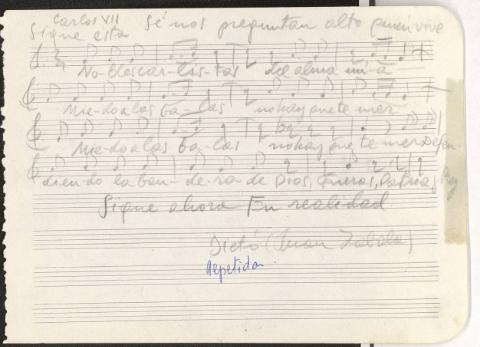 Carlos VII
Sigue esta Sé nos preguntan alto quien vive
No-bles car-lis-tas de alma mí-a
Mie-do a las ba-las no hay que te mer
Mie-do a las ba-las no hay que te mer Defen-
diendo la ban-de-ra de Dios, Fueros, Patria, Rey
Sigue ahora En realidad
Dictó (Juan Zabala)
Repetida